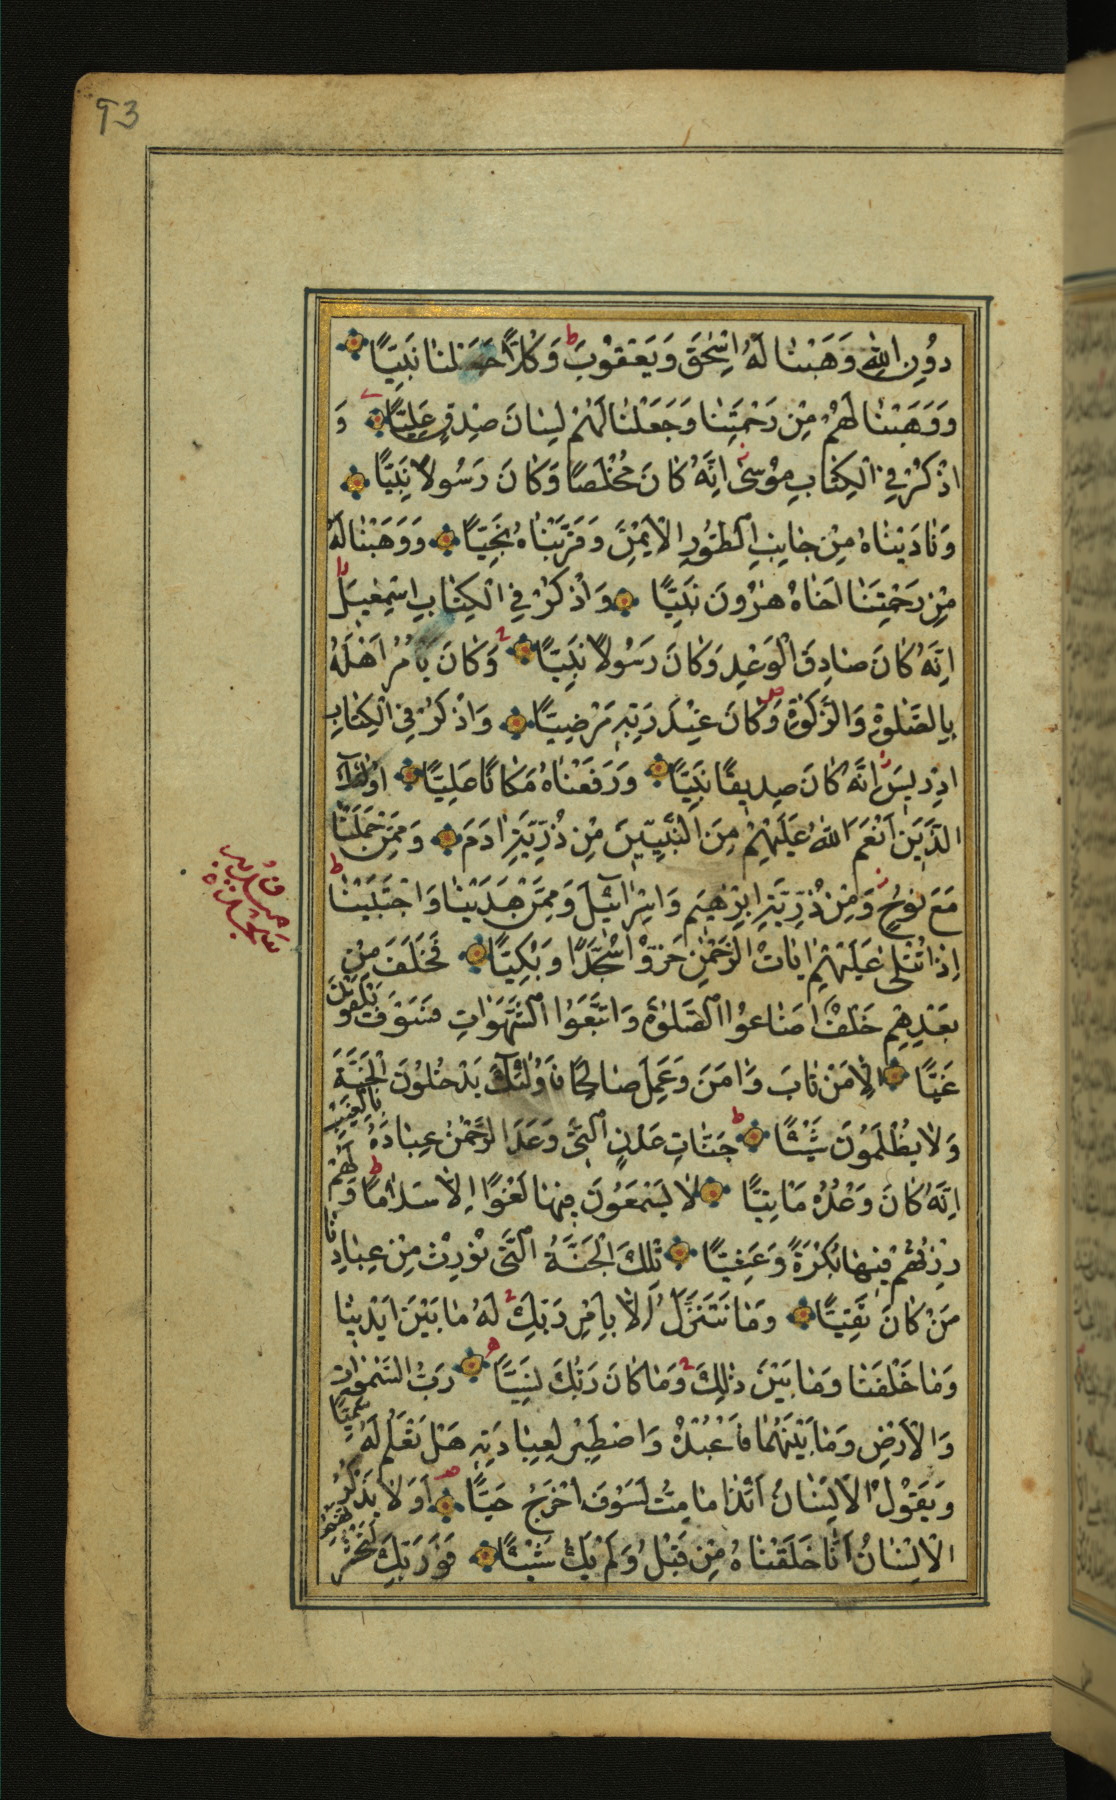 93
دُونِ اللهِ وَهَبْنَا لَهُ اِسْحٰقَ وَيَعْقُوبَ ط وَكُلًّا جَعَلْنَا نَبِيًّا
وَوَهَبْنَا لَهُمْ مِنْ رَحْمَتِنَا وَجَعَلْنَا لَهُمْ لِسَانَ صِدْقٍ عَلِيًّا وَ
اذْكُرْ فِي الْكِتَابِ مُوسٰى اِنَّهُ كَانَ مُخْلَصًا وَكَانَ رَسُولًا نَبِيًّا
وَنَادَيْنَاهُ مِنْ جَانِبِ الطُّورِ الْاَيْمَنِ وَقَرَّبْنَاهُ نَجِيًّا وَوَهَبْنَا لَهُ
مِنْ رَحْمَتِنَا اَخَاهُ هٰرُونَ نَبِيًّا وَاذْكُرْ فِي الْكِتَابِ اِسْمٰعِيلَ
اِنَّهُ كَانَ صَادِقَ الْوَعْدِ وَكَانَ رَسُولًا نَبِيًّا وَكَانَ يَأْمُرُ اَهْلَهُ
بِالصَّلٰوةِ وَالزَّكٰوةِ ص وَكَانَ عِنْدَ رَبِّهِ مَرْضِيًّا وَاذْكُرْ فِي الْكِتَابِ
اِدْرِيسَ اِنَّهُ كَانَ صِدِّيقًا نَبِيًّا وَرَفَعْنَاهُ مَكَانًا عَلِيًّا اُولٰئِكَ
الَّذِينَ اَنْعَمَ اللهُ عَلَيْهِمْ مِنَ النَّبِيِّينَ مِنْ ذُرِّيَّةِ اٰدَمَ وَمِمَّنْ حَمَلْنَا
مَعَ نُوحٍ وَمِنْ ذُرِّيَّةِ اِبْرٰهِيمَ وَاِسْرَائِيلَ وَمِمَّنْ هَدَيْنَا وَاجْتَبَيْنَا ط
اِذَا تُتْلٰى عَلَيْهِمْ اٰيَاتُ الرَّحْمٰنِ خَرُّوا سُجَّدًا وَبُكِيًّا فَخَلَفَ مِنْ
بَعْدِهِمْ خَلْفٌ اَضَاعُوا الصَّلٰوةَ وَاتَّبَعُوا الشَّهَوَاتِ فَسَوْفَ يَلْقَوْنَ
غَيًّا اِلَّا مَنْ تَابَ وَاٰمَنَ وَعَمِلَ صَالِحًا فَاُولٰئِكَ يَدْخُلُونَ الْجَنَّةَ
وَلَا يُظْلَمُونَ شَيْئًا ط جَنَّاتِ عَدْنٍ الَّتِي وَعَدَ الرَّحْمٰنُ عِبَادَهُ بِالْغَيْبِ
اِنَّهُ كَانَ وَعْدُهُ مَأْتِيًّا لَا يَسْمَعُونَ فِيهَا لَغْوًا اِلَّا سَلَامًا ط وَلَهُمْ
رِزْقُهُمْ فِيهَا بُكْرَةً وَعَشِيًّا تِلْكَ الْجَنَّةُ الَّتِي نُورِثُ مِنْ عِبَادِنَا
مَنْ كَانَ تَقِيًّا وَمَا نَتَنَزَّلُ اِلَّا بِاَمْرِ رَبِّكَ لَهُ مَا بَيْنَ اَيْدِينَا
وَمَا خَلْفَنَا وَمَا بَيْنَ ذٰلِكَ وَمَا كَانَ رَبُّكَ نَسِيًّا رَبُّ السَّمٰوَاتِ
وَالْاَرْضِ وَمَا بَيْنَهُمَا فَاعْبُدْهُ وَاصْطَبِرْ لِعِبَادَتِهِ هَلْ تَعْلَمُ لَهُ سَمِيًّا
وَيَقُولُ الْاِنْسَانُ اَئِذَا مَا مِتُّ لَسَوْفَ اُخْرَجُ حَيًّا اَوَلَا يَذْكُرُ
الْاِنْسَانُ اَنَّا خَلَقْنَاهُ مِنْ قَبْلُ وَلَمْ يَكُ شَيْئًا فَوَرَبِّكَ لَنَحْشُرَنَّهُمْ